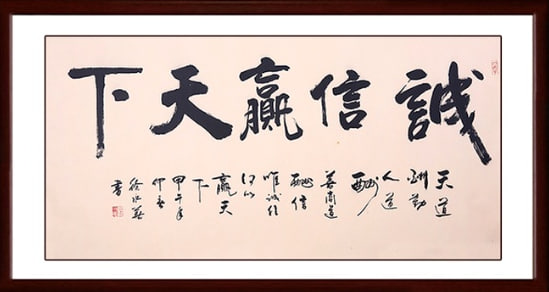 誠信贏天下
天道
酬勤
人道
酬
善商道
酬信
唯誠信
可以
贏天
下
甲午年
書